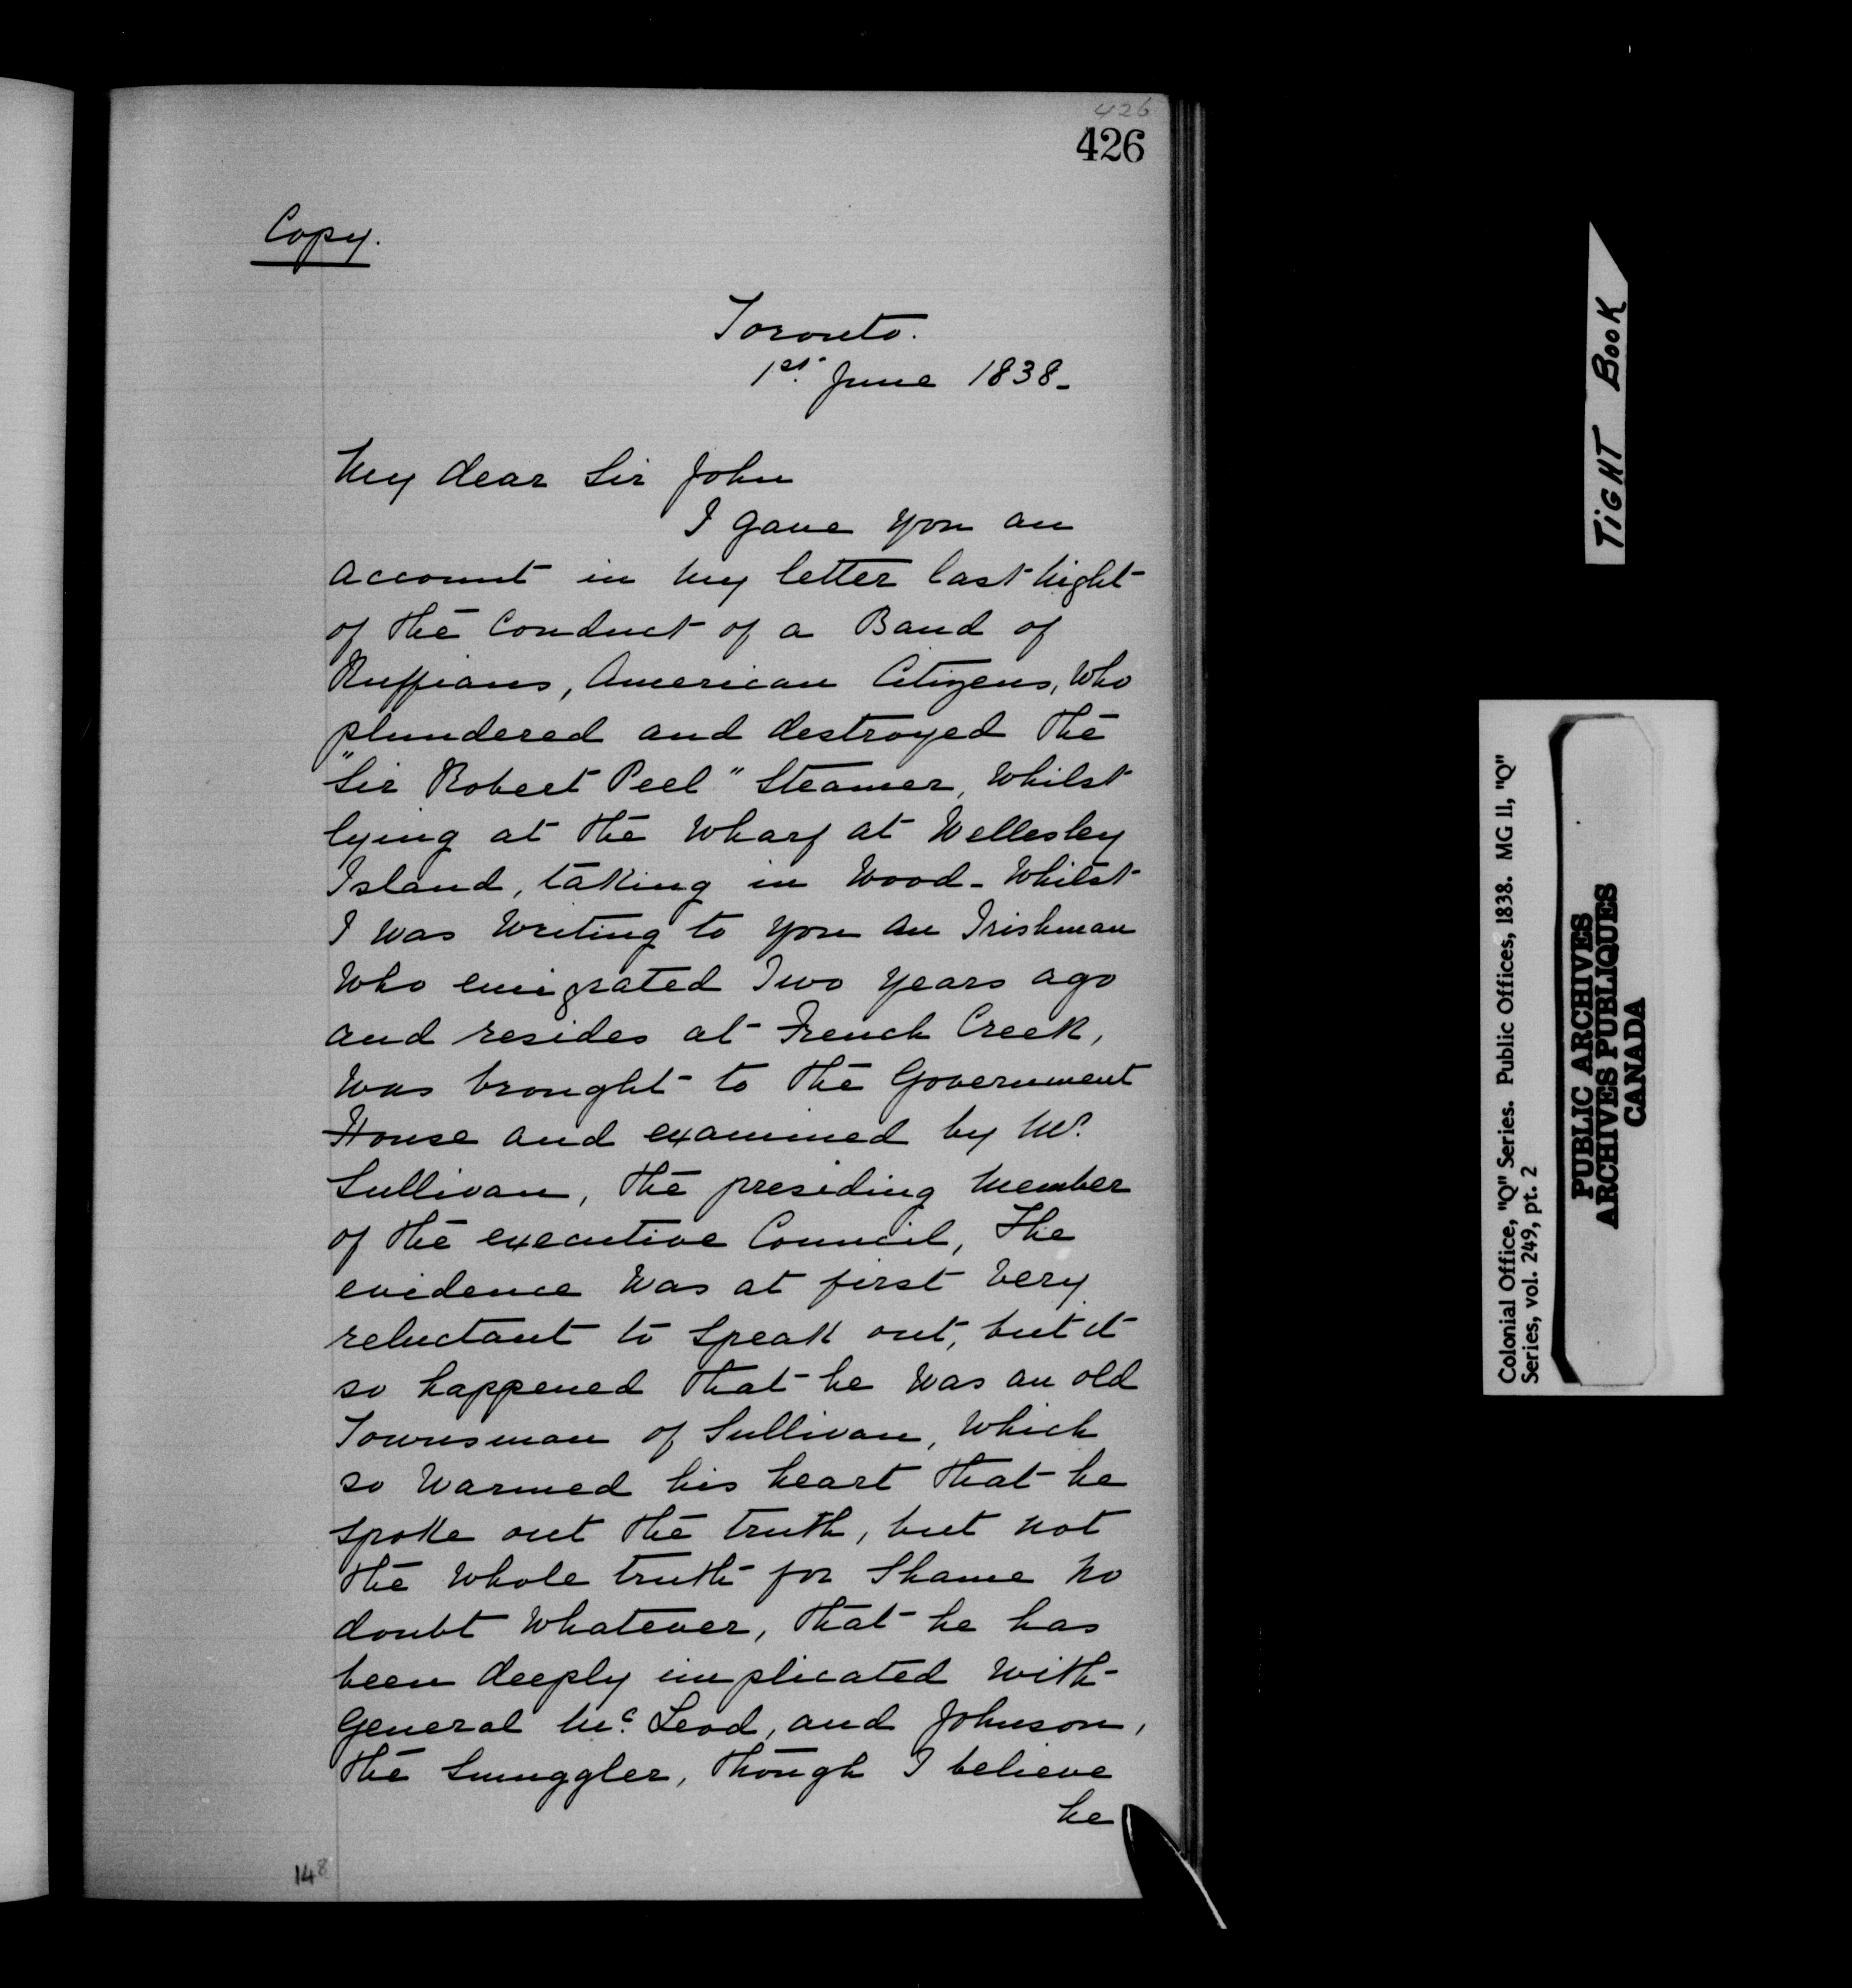 426
426
Copy.
Toronto.
1st. June 1838-
My dear Sir John
I gave you an
account in my letter last night
of the Conduct of a Band of
Ruffians, American Citizens, who
plundered and destroyed the
"Sir Robert Peel" Steamer, whilst
lying at the wharf at Wellesley
Island, taking in wood- whilst
I was writing to you an Irishman
who emigrated Two years ago
and resides at French Creek,
was brought to the Government
House and examined by Mr.
Sullivan, the presiding member
of the executive Council, The
evidence was at first very
reluctant to speak out, but it
so happened that he was an old
Townsman of Sullivan, which
so warmed his heart that he
spoke out the truth, but not
the whole truth for Shame no
doubt whatever, that he has
been deeply implicated with
General Mc. Leod, and Johnson,
the Smuggler, though I believe
he
148
TIGHT BOOK
Colonial Office, "Q" Series. Public Offices, 1838. MG 11, "Q"
Series, vol. 249, pt. 2
PUBLIC ARCHIVES
ARCHIVES PUBLIQUES
CANADA